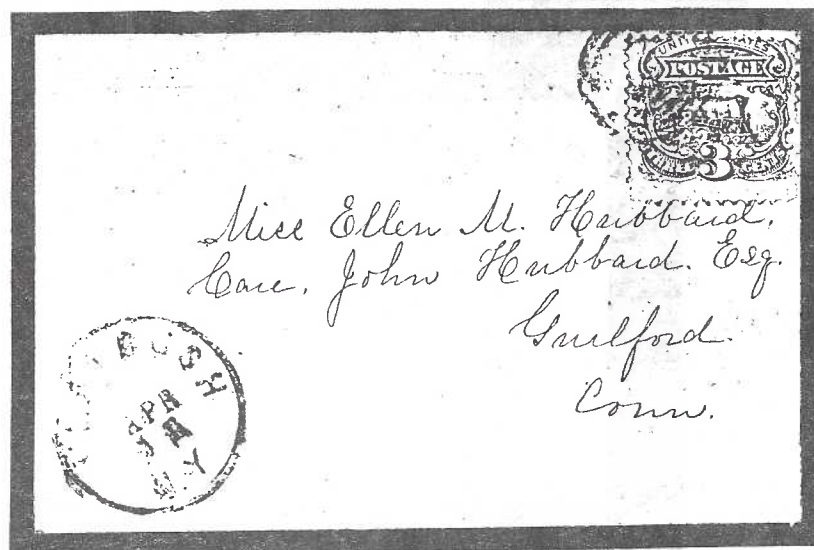 UNITED STATES
POSTAGE
THREE 3 CENTS
Miss Ellen M. Hubbard.
Care. John Hubbard. Esq.
Guilford.
Conn.
APR
N.Y